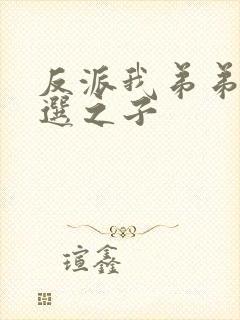 反派我弟弟
選之子
瑄鑫